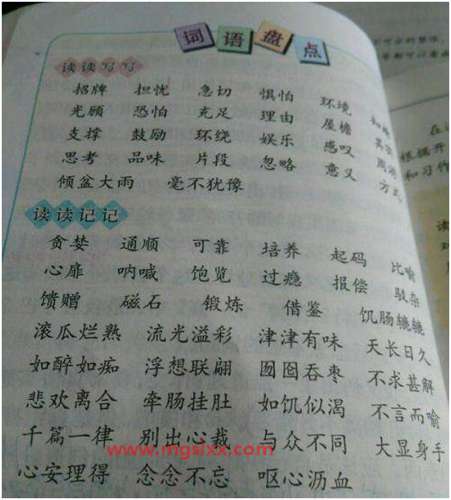 词语盘点
读读写写
招牌 担忧 急切 惧怕 环境
光顾 恐怕 充足 理由 屋檐 其实
支撑 鼓励 环绕 娱乐 感叹
思考 品味 片段 忽略 意义 方式
倾盆大雨 毫不犹豫
读读记记
贪婪 通顺 可靠 培养 起码 比喻
心扉 呐喊 饱览 过瘾 报偿 驳杂
馈赠 磁石 锻炼 借鉴 饥肠辘辘
滚瓜烂熟 流光溢彩 津津有味 天长日久
如醉如痴 浮想联翩 囫囵吞枣 不求甚解
悲欢离合 牵肠挂肚 如饥似渴 不言而喻
千篇一律 别出心裁 与众不同 大显身手
心安理得 念念不忘 呕心沥血
www.mgsixx.com
和习作